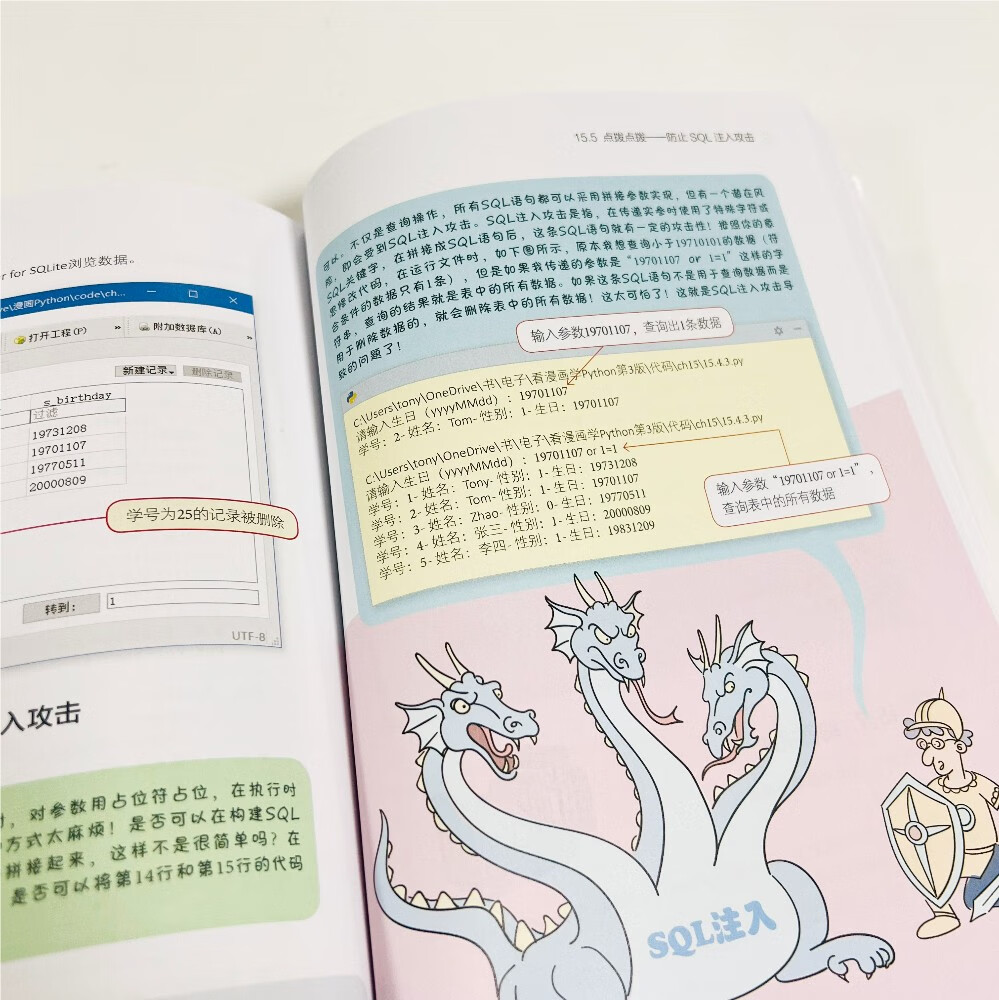 er for SQLite浏览数据。
ve\漫画Python\code\ch...
打开工程(P)
»
附加数据库(A)
»
新建记录
删除记录
s_birthday
过滤
19731208
19701107
19770511
20000809
学号为25的记录被删除
转到：
1
UTF-8
入攻击
，对参数用占位符占位，在执行时
方式太麻烦！是否可以在构建SQL
拼接起来，这样不是很简单吗？在
是否可以将第14行和第15行的代码
15.5 点拨点拨——防止 SQL 注入攻击
可以。不仅是查询操作，所有SQL语句都可以采用拼接参数实现，但有一个潜在风
险，即会受到SQL注入攻击。SQL注入攻击是指，在传递实参时使用了特殊字符或
SQL关键字，在拼接成SQL语句后，这条SQL语句就有一定的攻击性！按照你的意
思修改代码，在运行文件时，如下图所示，原本我想查询小于19710101的数据（符
合条件的数据只有1条），但是如果我传递的参数是“19701107 or 1=1”这样的字
符串，查询的结果就是表中的所有数据。如果这条SQL语句不是用于查询数据而是
用于删除数据的，就会删除表中的所有数据！这太可怕了！这就是SQL注入攻击导
致的问题了！
输入参数19701107，查询出1条数据
C:\Users\tony\OneDrive\书\电子\看漫画学Python第3版\代码\ch15\15.4.3.py
请输入生日（yyyyMMdd）：19701107
学号：2- 姓名：Tom- 性别：1- 生日：19701107
C:\Users\tony\OneDrive\书\电子\看漫画学Python第3版\代码\ch15\15.4.3.py
请输入生日（yyyyMMdd）：19701107 or 1=1
学号：1- 姓名：Tony- 性别：1- 生日：19731208
学号：2- 姓名：Tom- 性别：1- 生日：19701107
学号：3- 姓名：Zhao- 性别：0- 生日：19770511
学号：4- 姓名：张三- 性别：1- 生日：20000809
学号：5- 姓名：李四- 性别：1- 生日：19831209
输入参数“19701107 or 1=1”，
查询表中的所有数据
SQL注入